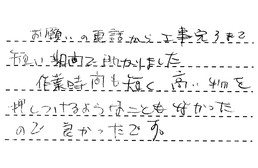 お願いの電話から工事完了まで
短い期間で助かりました
作業時間も短く高い物を
押しつけるようなこともなかった
ので良かったです。